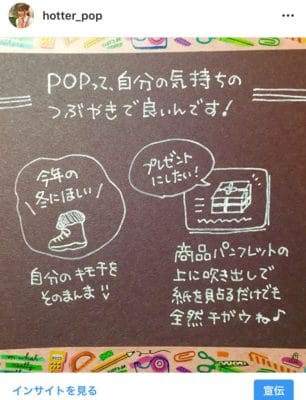 hotter_pop
POPって、自分の気持ちの
つぶやきで良いんです!
今年の
冬にほしい
自分のキモチを
そのまんま!!
プレゼント
にしたい!
商品パンフレットの
上に吹き出しで
紙を貼るだけでも
全然チガウね♪
インサイトを見る
宣伝